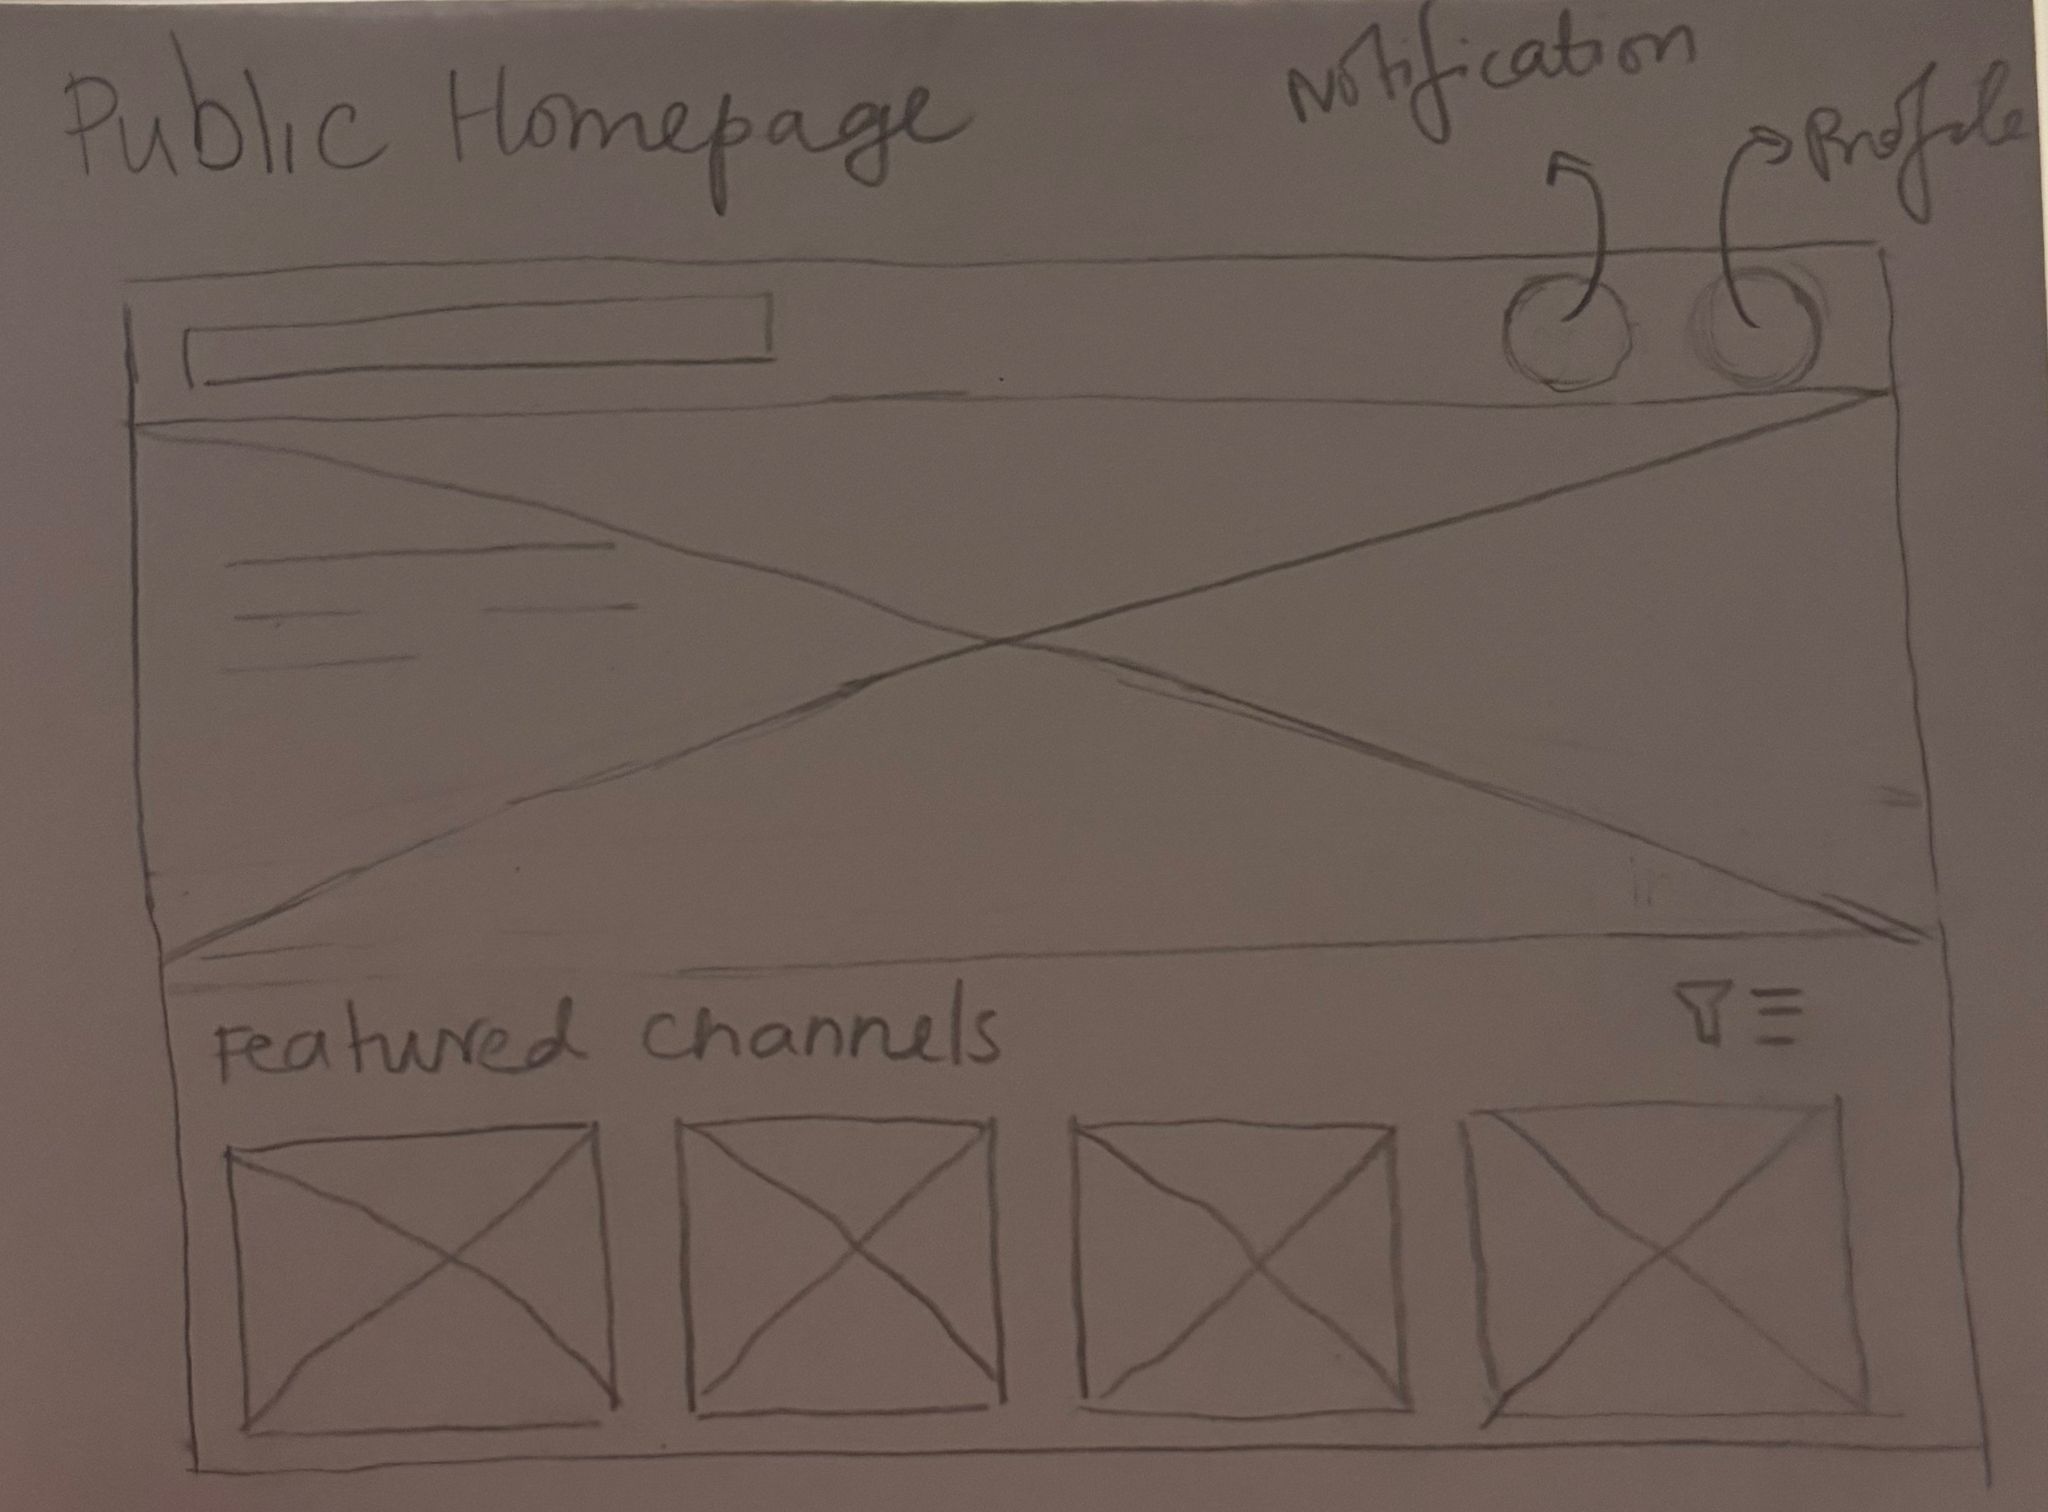 Public Homepage
Notification
Profile
Featured channels